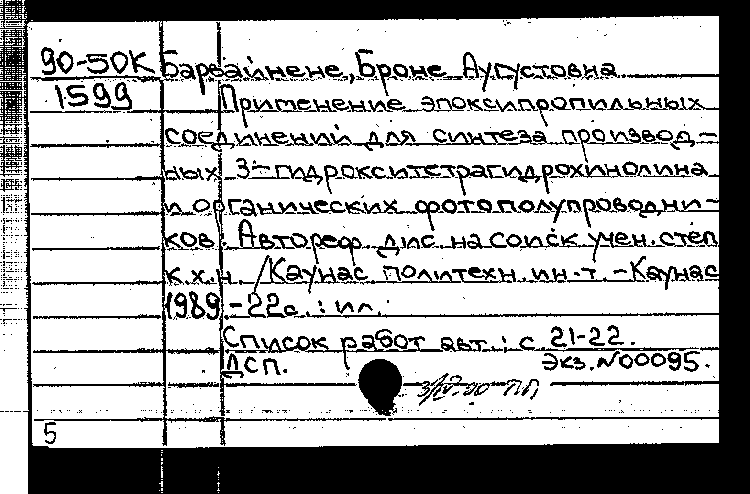 90-50К Барвайнене, Броне Аугустовна
1599 Применение эпоксипропильных
соединений для синтеза производ-
ных 3-гидрокситетрагидрохинолина
и органических фотополупроводни-
ков: Автореф. дис. на соиск. учен. степ.
к.х.н. /Каунас. политехн. ин-т. - Каунас
1989. - 22с. : ил.
Список работ авт.: с. 21-22.
ДСП. Экз. N00095.
5